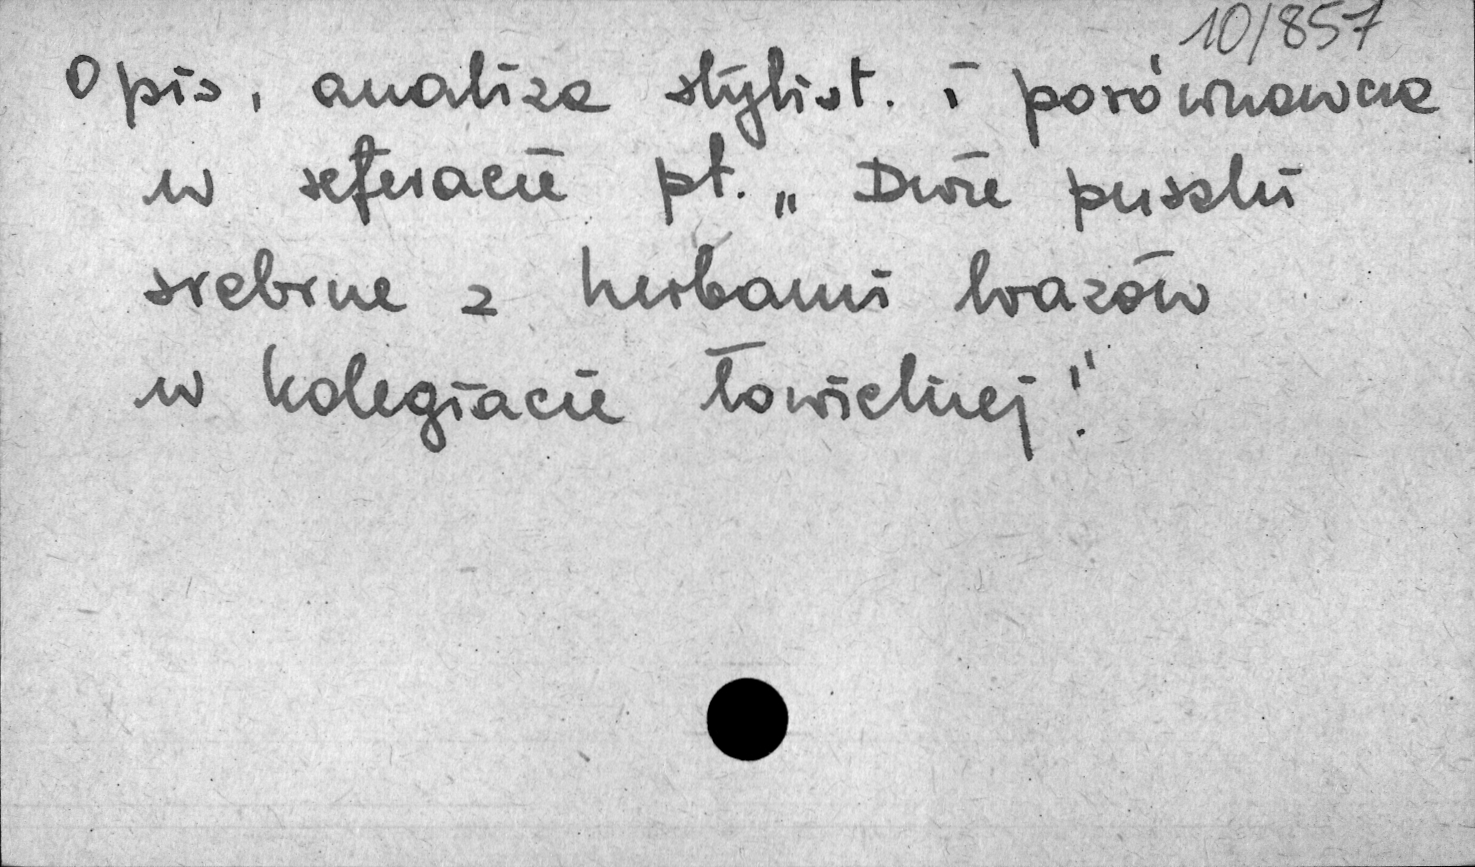 10/857
Opis, analiza stylist. i porównawcza
w referacie pt. „Dwie puszki
srebrne z herbami Wazów
w kolegiacie łowickiej".